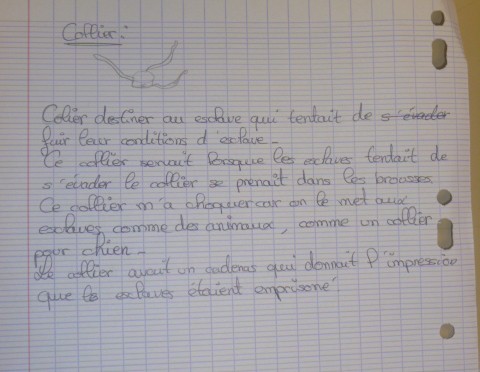 Collier :
Colier destiner au esclave qui tentait de s'évader
fuir leur conditions d'esclave -
Ce collier servait lorsque les esclaves tentait de
s'évader le collier se prenait dans les brousses
Ce collier m'a choquer car on le met aux
esclaves comme des animaux, comme un collier
pour chien -
Le collier avait un cadenas qui donnait l'impression
que les esclaves étaient emprisoné